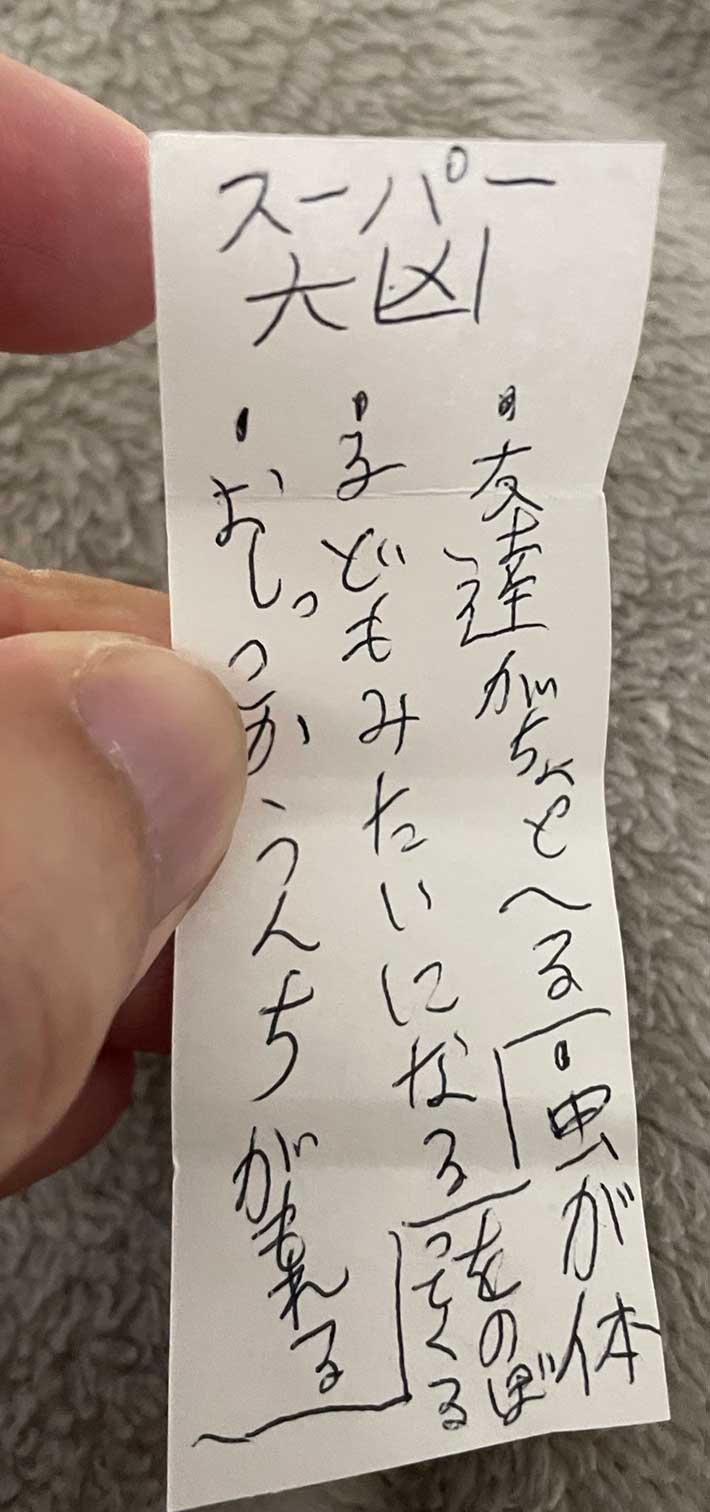 スーパー
大凶
・友達がちょとへる
・子どもみたいになる
・おしっこかうんちが漏れる
・虫が体
をのぼ
ってくる